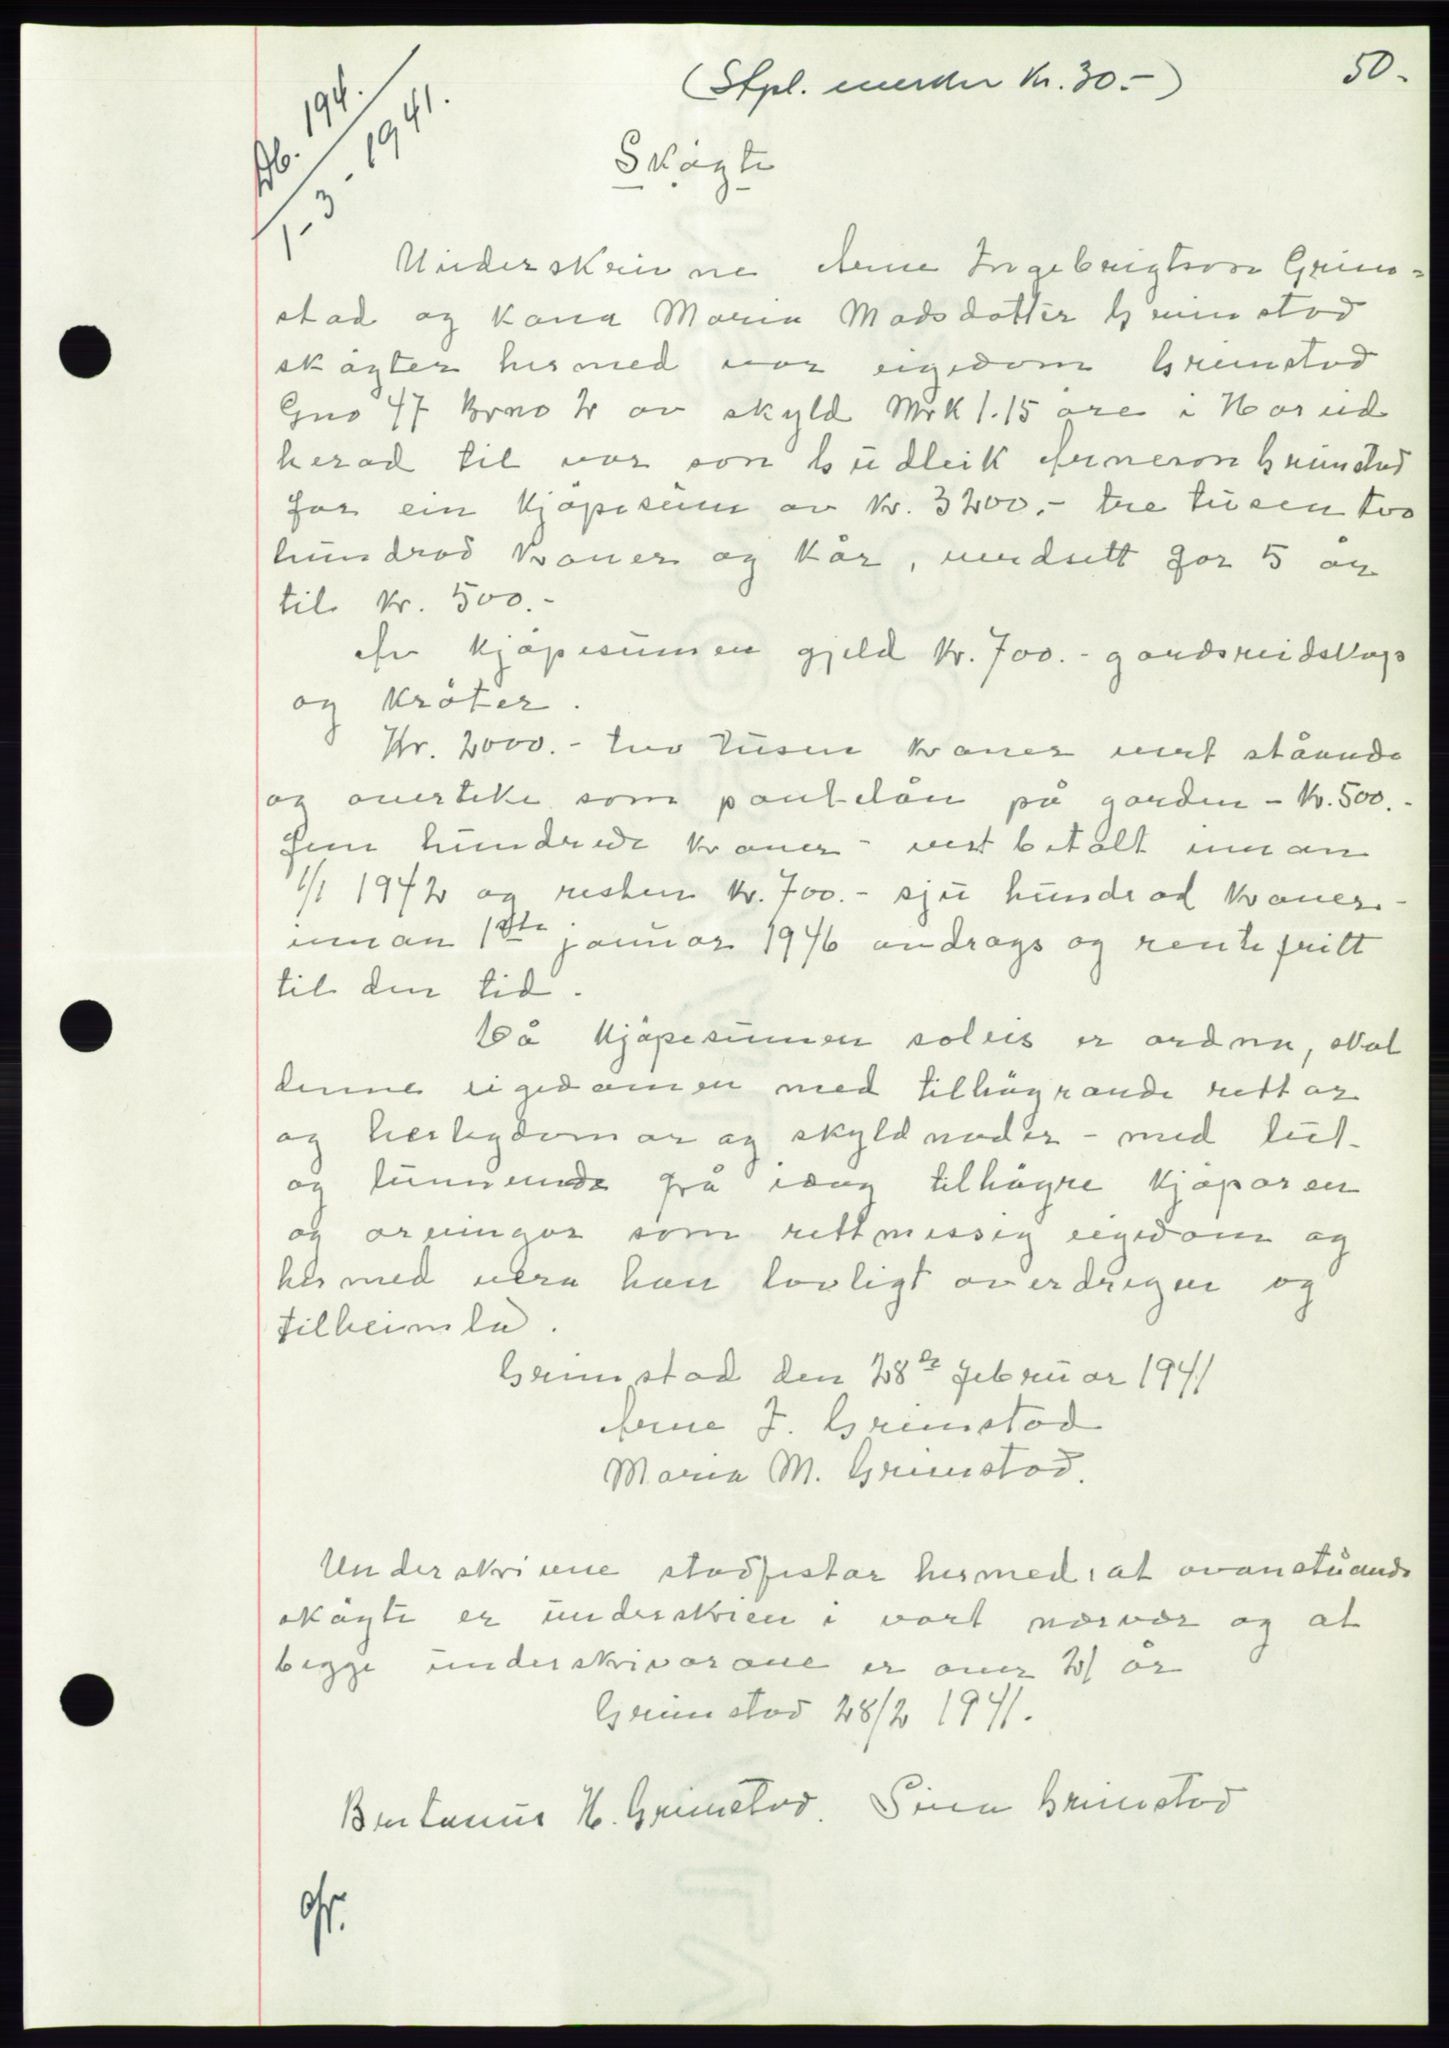 Db. 194.
1-3-1941.
(Stpl. merker Kr. 30.-)
50.
Skøyte
Underskrivne Arne Ingebrigtson Grim-
stad og kona Maria Madsdotter Grimstad
skøyter hermed vor eigedom Grimstad
Gno 47 Brno 2 av skyld Mrk 1.15 øre i Hareid
herad til vor son Gudleik Arneson Grimstad
for ein kjøpesum av Kr. 3200.- tre tusen tvo
hundrad kroner og kår, verdsett for 5 år
til Kr. 500.-
Av kjøpesumen gjeld Kr. 700.- gardsreidskap
og krøter.
Kr. 2000.- tvo tusen kroner vert ståande
og overteke som pant-lån på garden - Kr. 500.-
fem hundrede kroner - vert betalt innan
1/1 1942 og resten Kr. 700.- sju hundrad kroner -
innan 1ste januar 1946 avdrags og rentefritt
til den tid.
Då kjøpesumen soleis er ordna, skal
denne eigedomen med tilhøyrande rettar
og herlegdomar og skyldnader - med lut-
og lunnende frå idag tilhøyre kjøparen
og arvingar som rettmessig eigedom og
hermed vera han lovligt overdregen og
tilheimla.
Grimstad den 28de februar 1941
Arne I. Grimstad
Maria M. Grimstad.
Underskrivne stadfestar hermed, at ovanståande
skøyte er underskriven i vort nærvær og at
begge underskrivarane er over 21 år
Grimstad 28/2 1941.
Bertanus H. Grimstad. Sina Grimstad